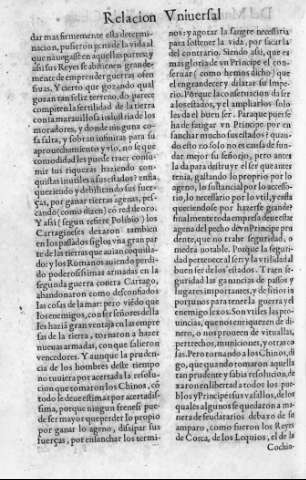 Relacion Vniuersal
dar mas firmemente esta determi-
nacion, pusieron pena de la vida al
que nauegasse en aquellas partes, y
assi sus Reyes se abstienen grande-
mente de emprender guerras ofen
siuas. Y cierto que gozando qual
gozan tan feliz terreno, do parece
compiten la fertilidad de la tierra
con la marauillosa industria de los
moradores, y donde ninguna co-
sa falta, y sobran infinitas para su
aprouechamiento y vio, no se que
comodidad les puede traer consu-
mir sus riquezas haziendo con-
quistas inutiles a sus estados? ensla
queziendo y debilitando sus fuer-
ças, por ganar tierras agenas, pes-
cando (como dizen) co red de oro.
Y assi (segun refiere Polibio) los
Cartagineses dexaron tambien
en los passados siglos vna gran par
te de las tierras que auian conquista-
do: y los Romanos auiendo perdi-
do poderosissimas armadas en la
segunda guerra contra Cartago,
abandonaron como desconfiados
las cosas de la mar: pero viẽdo que
los enemigos, con ser señores della
les haziã gran ventaja en las empre
sas de la tierra, tornaron a hazer
nueuas armadas, con que salieron
vencedores. Y aunque la pruden-
cia de los hombres deste tiempo
no tuuiera por acertada la resolu-
cion que tomaron los Chinos, cõ
todo le deue estimar por acertadis-
sima, porque ningun frenesi pue-
de ser mayor que perder lo propio
por ganar lo ageno, disipar sus
fuerças, por ensanchar los termi-
nos: y agotar la sangre necessaria
para sostener la vida, por sacarla
del contrario. Siendo assi, que es
mas gloria de vn Principe el con-
seruar (como hemos dicho) que
el engrandecer y dilatar su Impe-
rio. Porque la conseruacion da ser
a los estados, y el ampliarlos solo
les da el buen ser. Para que pues se
ha de fatigar vn Principe por en
sanchar mucho sus estados? quan-
do esto no solo no es causa de fun-
dar mejor su señorio, pero antes
la da para destruyr el ser que antes
tenia, gastando lo proprio por lo
ageno, lo sustancial por lo accesso-
rio, lo necessario por lo vtil, y em
pequeñeciendose por hazerse grande?
finalmente toda empresa deue estar
agena del pecho de vn Principe pru
dente, que no trahe seguridad, o
medra notable. Porque la seguri-
dad pertenece al ser: y la vtilidad al
buen ser de los estados. Traen se-
guridad las ganancias de passos y
lugares importantes, y de sitios o-
portunos para tener la guerra y el
enemigo lexos. Son vtiles las pro-
uincias, que nos enriquezen de di-
nero, o nos proueen de vituallas,
pertrechos, municiones, y otras co-
sas. Pero tornando a los Chinos, di
go, que quando tomaron aquella
tan prudente y sabia resolucion, de
xaron en libertad a todos los pue-
blos y Principes sus vasallos, de los
quales algunos se quedaron a ma-
nera de feudatarios debaxo de su
amparo, como fueron los Reyes
de Corea, de los Loquios, el de la
Cochin-